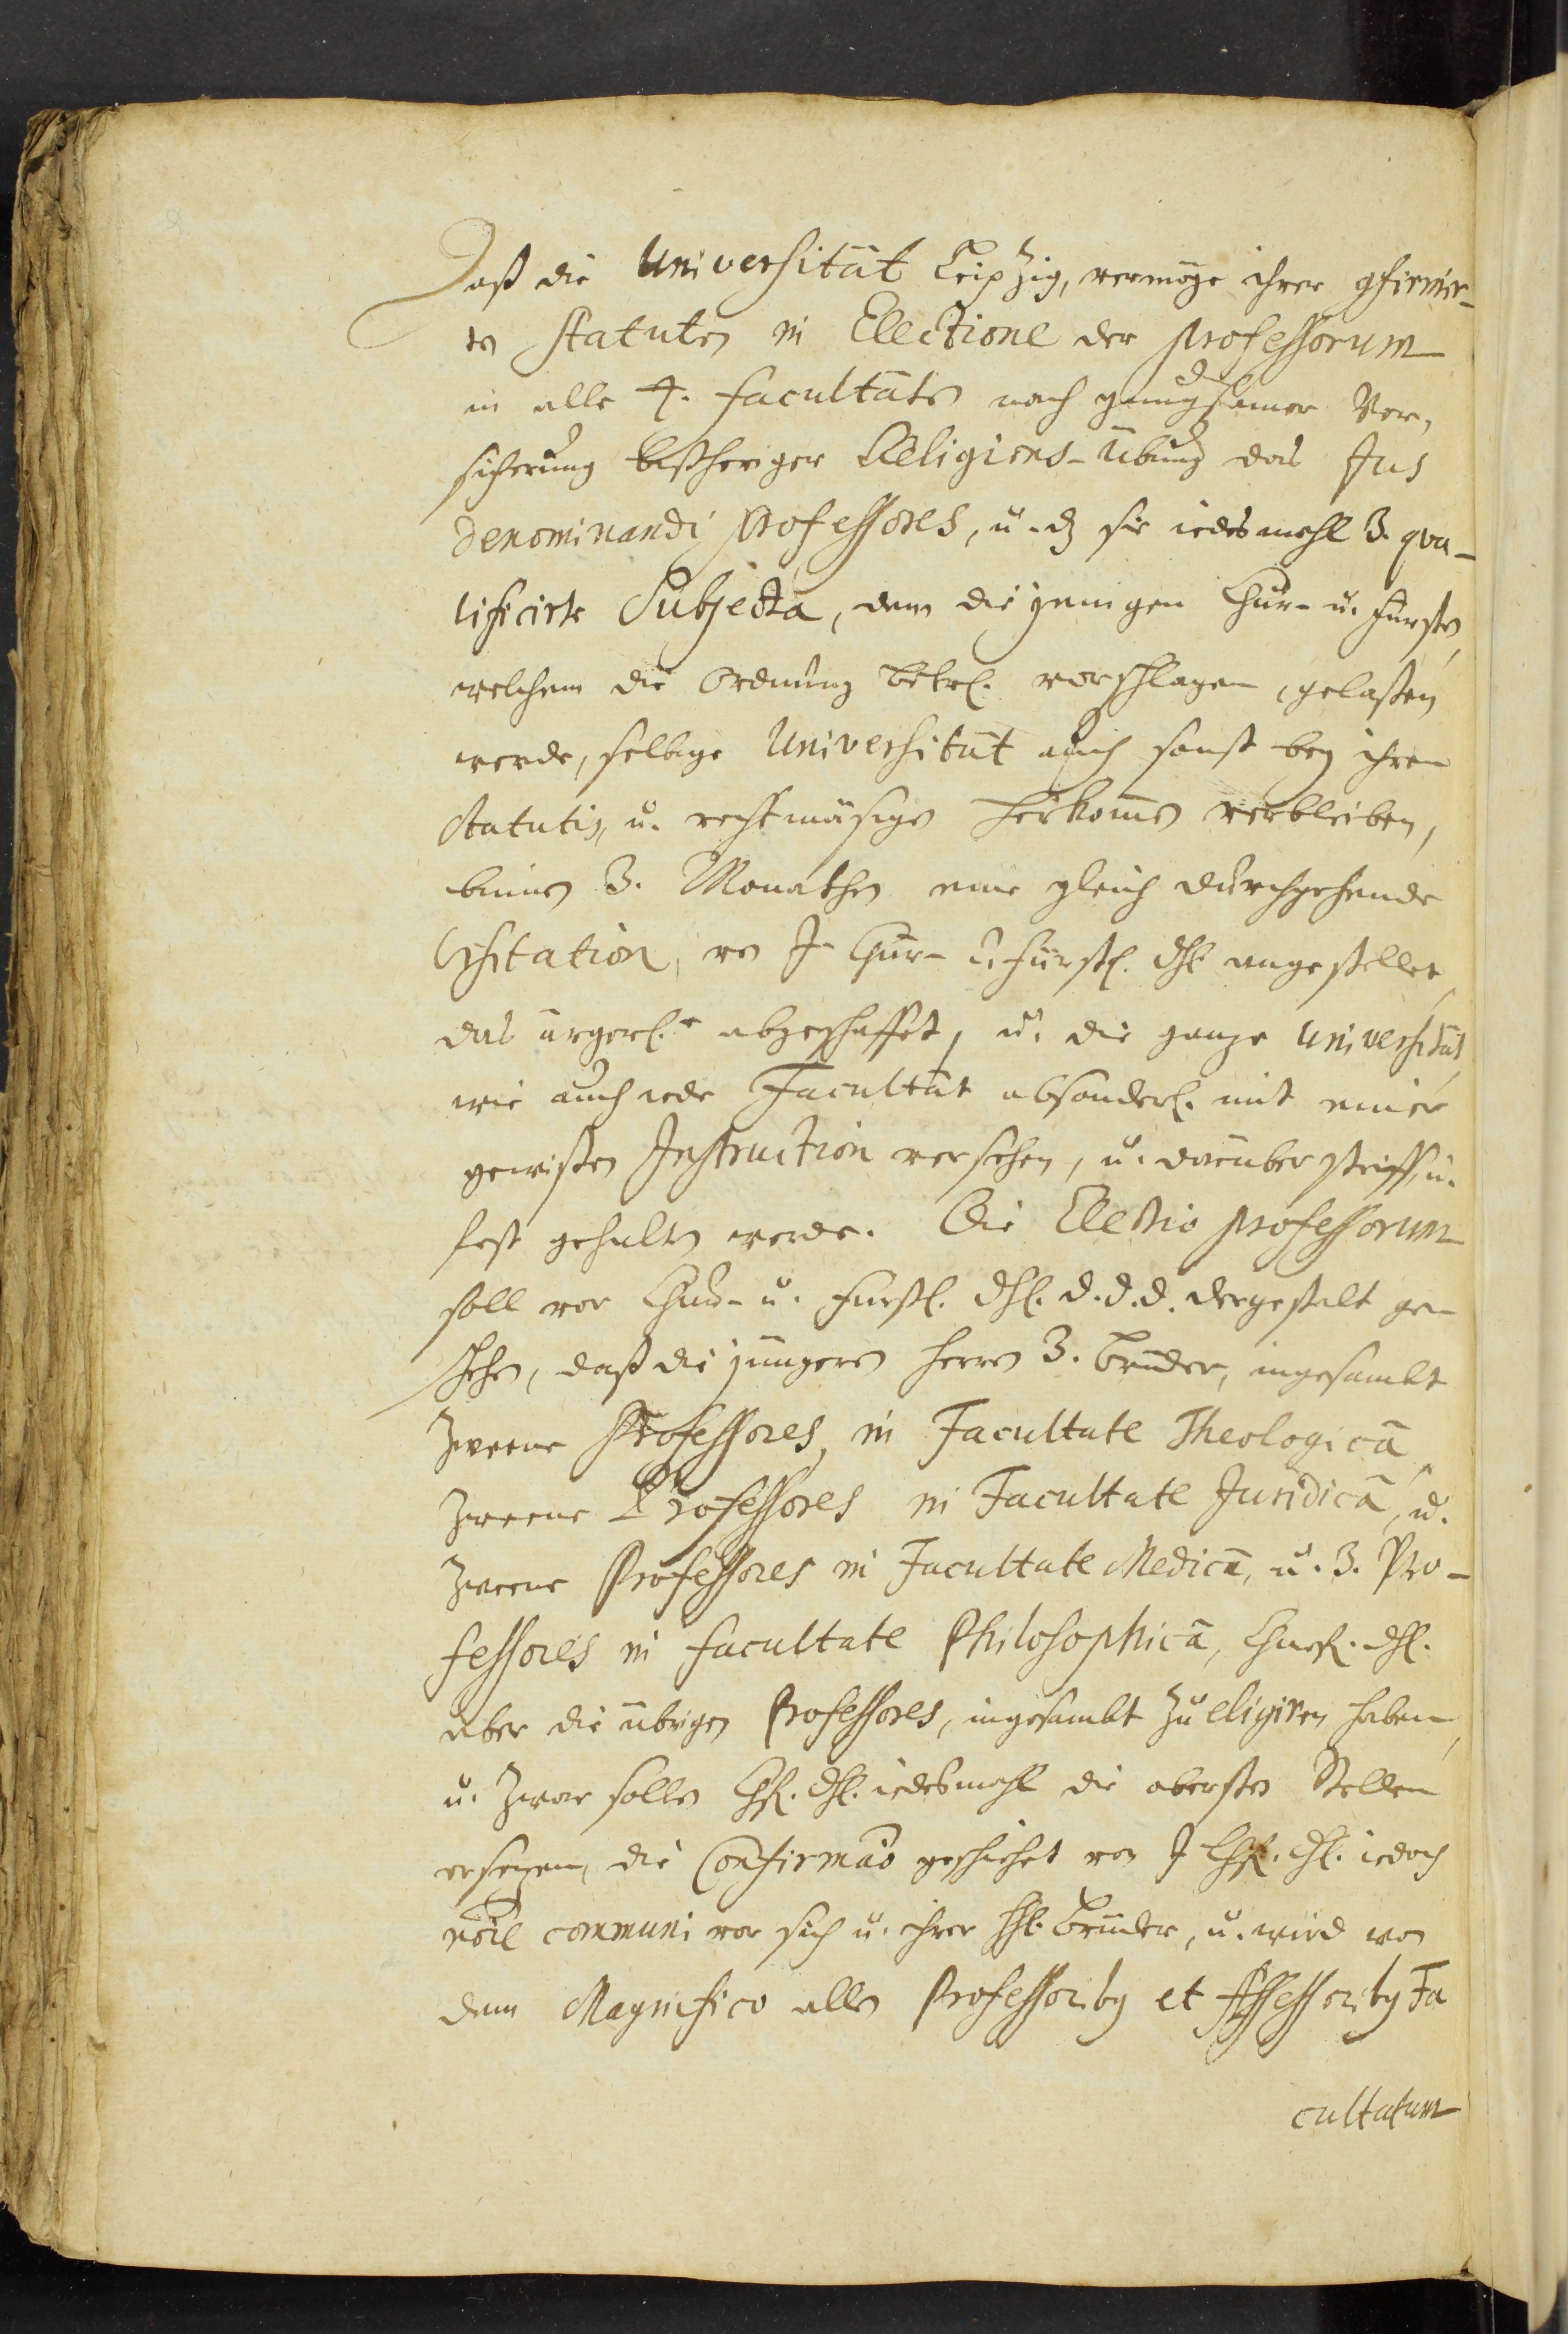 Daß die Universität Leipzig, vermöge ihrer gfirmir-
ten Statuten in Electione der Professorum
in alle 4. Facultäten nach gnugsamer Ver,
sicherung bißheriger Religions-Übung das Jus
denominandi Professores, u. dz sie iedesmahl 3. qva-
lificirte Subjecta, dem diejenigen Chur- u. Fürsten,
welchem die Ordnung betrl. vorschlagen, gelaßen
werde, selbige Universität auch sonst bey ihren
Statutis, u. rechtmäsigen Herkomen verbleiben,
binnen 3. Monathen eine gleich durchgehende
Visitation, von J. Chur- u. Fürstl. Dhl. angestellet,
das ärgerl.e abgeschaffet, u. die ganze Universität,
wie auch iede Facultät absonderl. mit einer
gewißen Instruction versehen, u. darüber steiff, u.
fest gehalten werde. Die Electio Professorum
soll von Chur- u. Fürstl. Dhl. D. D. D. dergestalt ge-
schehen, daß die jüngern Herren 3. Brüder, ingesambt
zweene Professores, in Facultate Theologicâ,
zweene Professores in Facultate Juridicâ, u.
zweene Professores in Facultate Medicâ, u. 3. Pro-
fessores in Facultate Philosophicâ, Churfl. Dhl.
aber die übrigen Professores, ingesambt zu eligiren haben,
u. zwar sollen Chfl. Dhl. iedesmahl die obersten Stellen
ersezen, die Confirmaõ geschiehet von J. Chfl. Dhl. iedoch
nõie communi vor sich u. ihrer Hl. Brüder, u. wird von
dem Magnifico allen Professoribq et Assessoribq Fa
cultatum